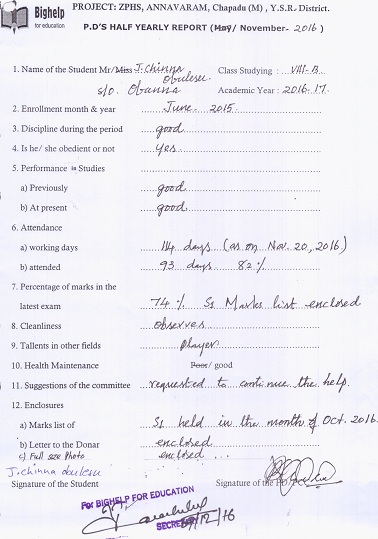 Bighelp
for education
PROJECT: ZPHS, ANNAVARAM, Chapadu (M) , Y.S.R. District.
P.D'S HALF YEARLY REPORT (May/ November- 2016 )
1. Name of the Student Mr/Miss J. Chinna Obulesu Class Studying : VIII-B
s/o. Obanna Academic Year : 2016-17.
2. Enrollment month & year June 2015
3. Discipline during the period good
4. Is he/ she obedient or not yes
5. Performance in Studies
a) Previously good
b) At present good
6. Attendance
a) working days 114 days (as on Nov. 20, 2016)
b) attended 93 days 82%
7. Percentage of marks in the
latest exam 74% S1 Marks list enclosed
8. Cleanliness observes
9. Tallents in other fields player
10. Health Maintenance Poor/ good
11. Suggestions of the committee requested to continue the help.
12. Enclosures
a) Marks list of S1 held in the month of Oct. 2016.
b) Letter to the Donar enclosed
c) Full size Photo enclosed
J. chinna obulesu
Signature of the Student Signature of the
For BIGHELP FOR EDUCATION
SECRETARY
/12/16